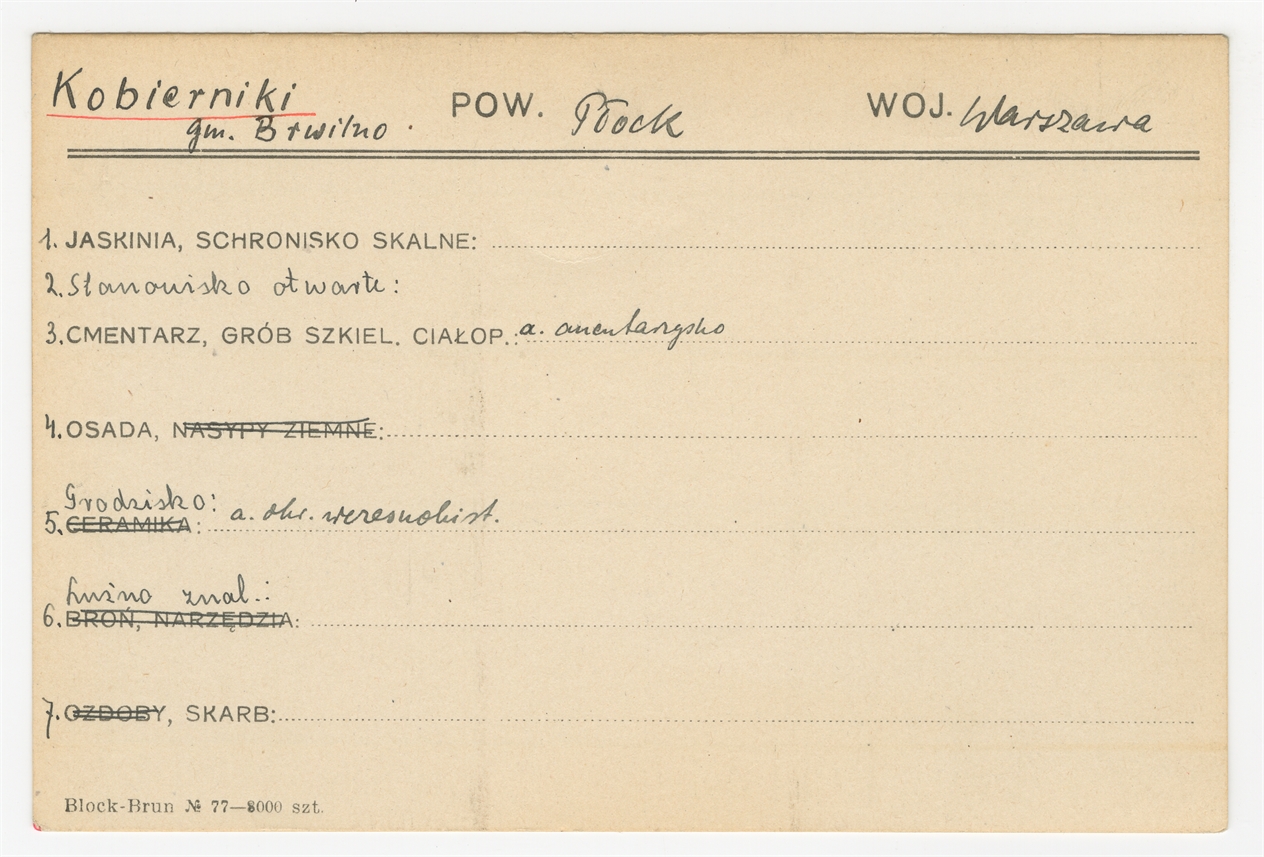 Kobierniki POW. Płock WOJ. Warszawa
gm. Brwilno.
1. JASKINIA, SCHRONISKO SKALNE:
2. Stanowisko otwarte:
3. CMENTARZ, GRÓB SZKIEL. CIAŁOP.: a. cmentarzysko
4. OSADA, NASYPY ZIEMNE:
Grodzisko:
5. CERAMIKA: a. okr. wczesnohist.
Luźno znal.:
6. BROŃ, NARZĘDZIA:
7. OZDOBY, SKARB:
Block-Brun № 77—8000 szt.